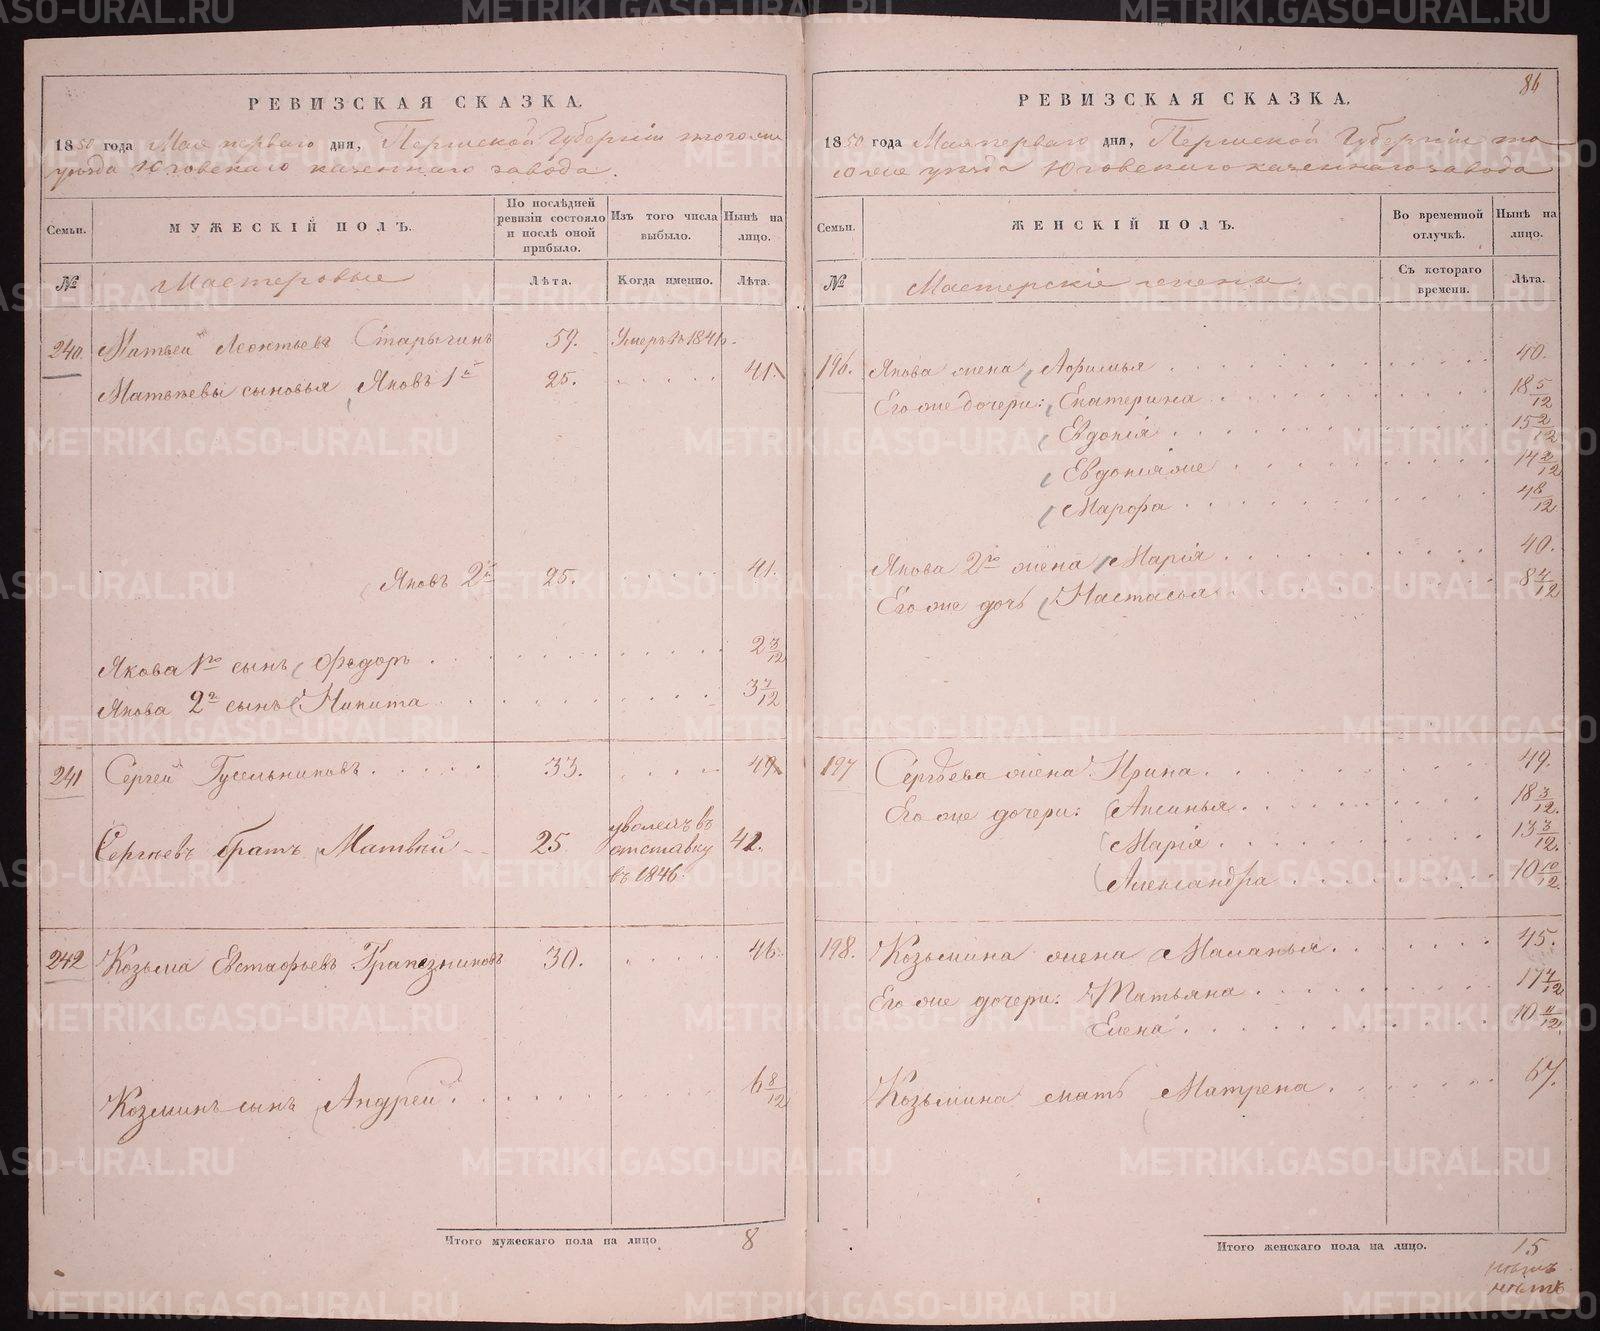 РЕВИЗСКАЯ СКАЗКА.
1850 года Мая перваго дня, Пермской Губерніи тогоже
уѣзда Юговскаго казеннаго завода.
Семьи.
МУЖЕСКІЙ ПОЛЪ.
По послѣдней ревизіи состояло и послѣ оной прибыло.
Изъ того числа выбыло.
Нынѣ на лицо.
№
Мастеровые
Лѣта.
Когда именно.
Лѣта.
240. Матвей Леонтьевъ Старыгинъ 59. Умеръ въ 1841.
Матвѣевы сыновья Яковъ 1й 25. 41.
Яковъ 2й 25. 41.
Якова 1го сынъ Федоръ 2 3/12
Якова 2го сынъ Никита 3 7/12
241 Сергей Гусельниковъ 33. 49
Сергѣевъ братъ Матвѣй 25 уволенъ въ отставку въ 1846. 41.
242 Козьма Евстафьевъ Трапезниковъ 30. 46.
Козминъ сынъ Андрей 6 8/12
Итого мужескаго пола на лицо 8
86
РЕВИЗСКАЯ СКАЗКА.
1850 года Мая перваго дня, Пермской Губерніи то
гоже уѣзда Юговскаго казеннаго завода
Семьи.
ЖЕНСКІЙ ПОЛЪ.
Во временной отлучкѣ.
Нынѣ на лицо.
№
Мастерскіе жены.
Съ котораго времени.
Лѣта.
196. Якова жена Афимья 40.
Его же дочери: Екатерина 18 5/12
Евдокія 15 2/12
Евдокія же 14 2/12
Марфа 4 8/12
Якова 2го жена Марія 40.
Его же дочь Настасья 8 4/12
197 Сергѣева жена Ирина 49.
Его же дочери: Аксинья 18 3/12.
Марія 13 3/12.
Александра 10 10/12.
198. Козьмина жена Маланья 45.
Его же дочери: Татьяна 17 7/12
Елена 10 11/12.
Козьмина мать Матрена 67.
Итого женскаго пола на лицо. 15
METRIKI.GASO-URAL.RU